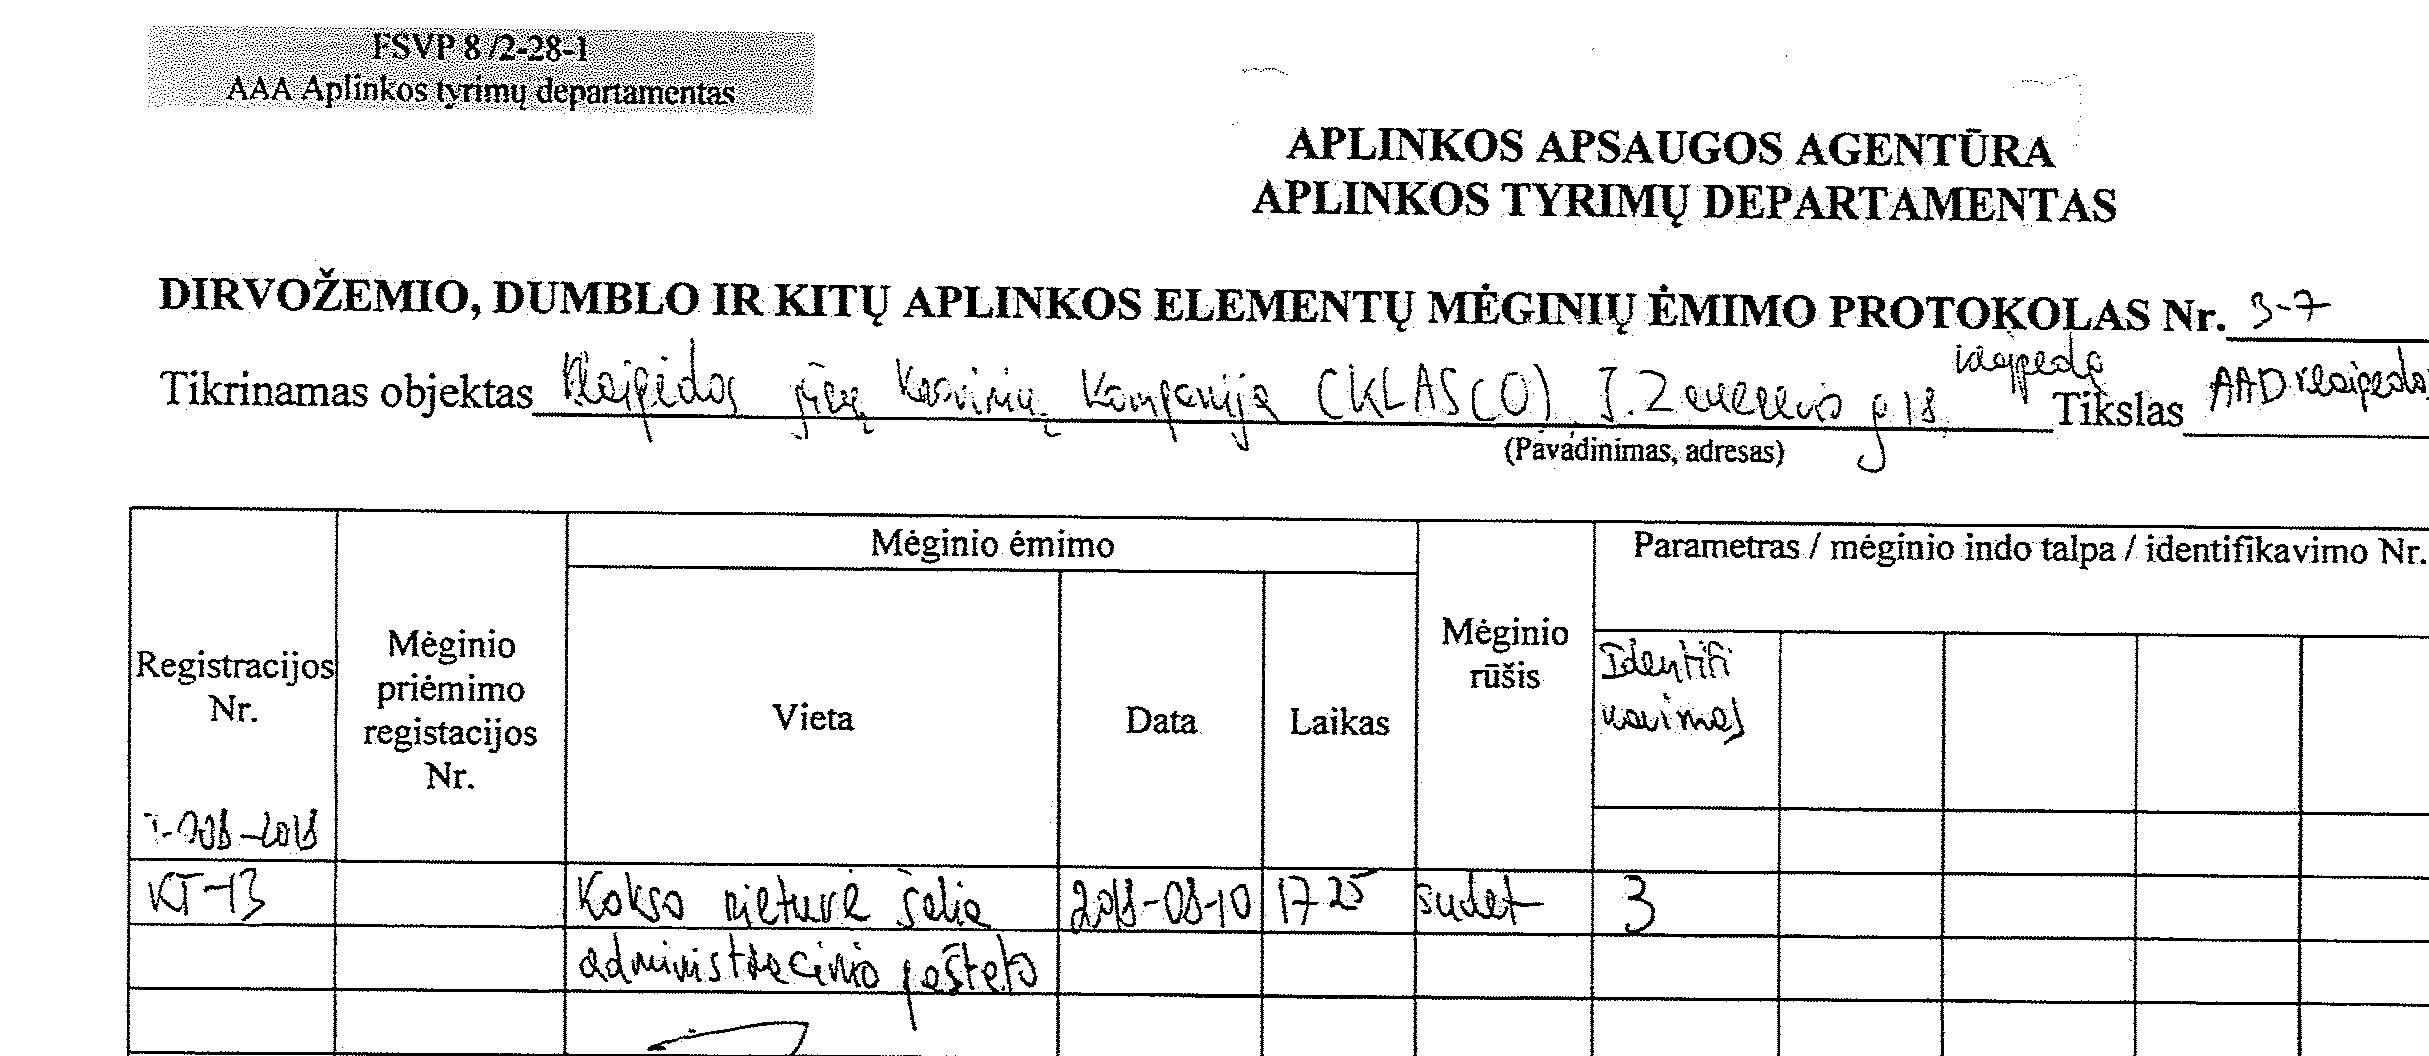 FSVP 8 /2-28-1
AAA Aplinkos tyrimų departamentas
APLINKOS APSAUGOS AGENTŪRA
APLINKOS TYRIMŲ DEPARTAMENTAS
DIRVOŽEMIO, DUMBLO IR KITŲ APLINKOS ELEMENTŲ MĖGINIŲ ĖMIMO PROTOKOLAS Nr. 3-7
Tikrinamas objektas Klaipėdos jūrų krovinių kompanija (KLASCO) J. Zauerveino g 18 Klaipėda Tikslas AAD Klaipėdos
(Pavadinimas, adresas)
Mėginio ėmimo
Parametras / mėginio indo talpa / identifikavimo Nr.
Registracijos Nr.
Mėginio priėmimo registacijos Nr.
Vieta
Data
Laikas
Mėginio rūšis
Identifi
kavimas
-008-2018
KT-13 Kokso rietuvė šalia 2018-08-10 17 25 sudėt 3
administracinio pastato